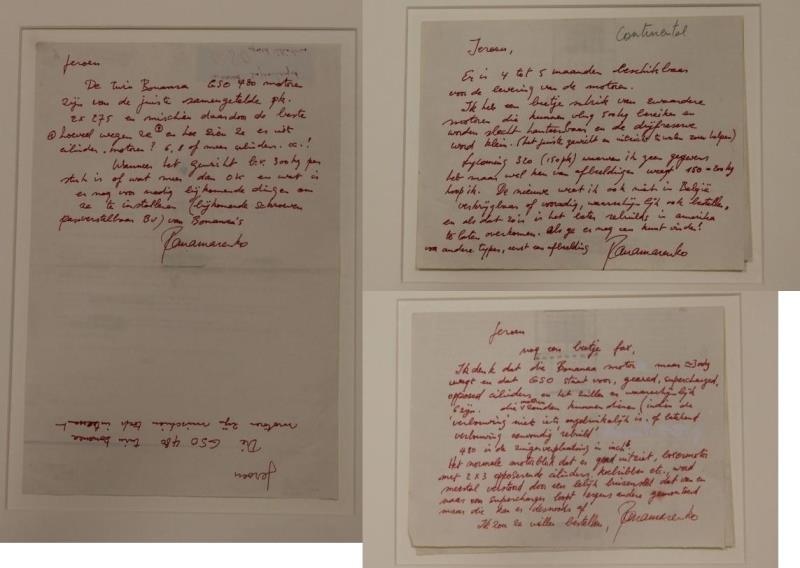 Jeroen
De twin Bonanza GSO 480 motoren
zijn van de juiste samengetelde pk.
2 x 275 en misschien daardoor de beste
hoeveel wegen ze en hoe zien ze er uit
cilinder motoren? 6, 8 of meer cilinders
Wanneer het gewicht bv. 300 kg per
stuk is of wat meer dan OK en wat is
er nog voor nodig bijkomende dingen om
ze te installeren (bijkomende schroeven
bv) van Bonanza's
Panamarenko
Die GSO 480 twin bonanza
motoren zijn misschien toch
Jeroen
Continental
Jeroen,
Er is 4 tot 5 maanden beschikbaar
voor de levering van de motoren.
Ik heb een beetje schrik van zwaardere
motoren die kunnen vlug 500 kg bereiken en
worden slecht hanteerbaar en de drijfreserve
word klein. (het juiste gewicht en uitzicht te weten zou helpen)
Lycoming 320 (150 pk) waarvan ik geen gegevens
heb maar wel een afbeelding weegt 150 – 200 kg
hoop ik. De nieuwe weet ik ook niet in België
verkrijgbaar of voorradig, waarschijnlijk ook bestellen,
en als dat zo is is het beter rebuilds in amerika
te laten overkomen. Als ge er nog een kunt vinden!
voor andere types, eerst een afbeelding Panamarenko
Jeroen
nog een beetje fax,
Ik denk dat die Bonanza motor maar ≈ 300 kg
weegt en dat GSO staat voor, geared, supercharged,
opposed cilinders en het zullen er waarschijnlijk
6 zijn. die motoren zouden kunnen dienen (indien de
vertouwing niet iets ongebruikelijk is. of betekend
eenvoudig 'rebuild'
480 is de zuigerverplaatsing in inch³
Het normale motorblok dat er goed uitziet, boxermotor
met 2 x 3 opposerende cilinders, koelribben etc., word
meestal verstoord door een lelijk buizenstel dat van en
naar van supercharger loopt ergens anders gemonteerd
maar die kan er desnoods af.
Ik zou ze willen bestellen, Panamarenko